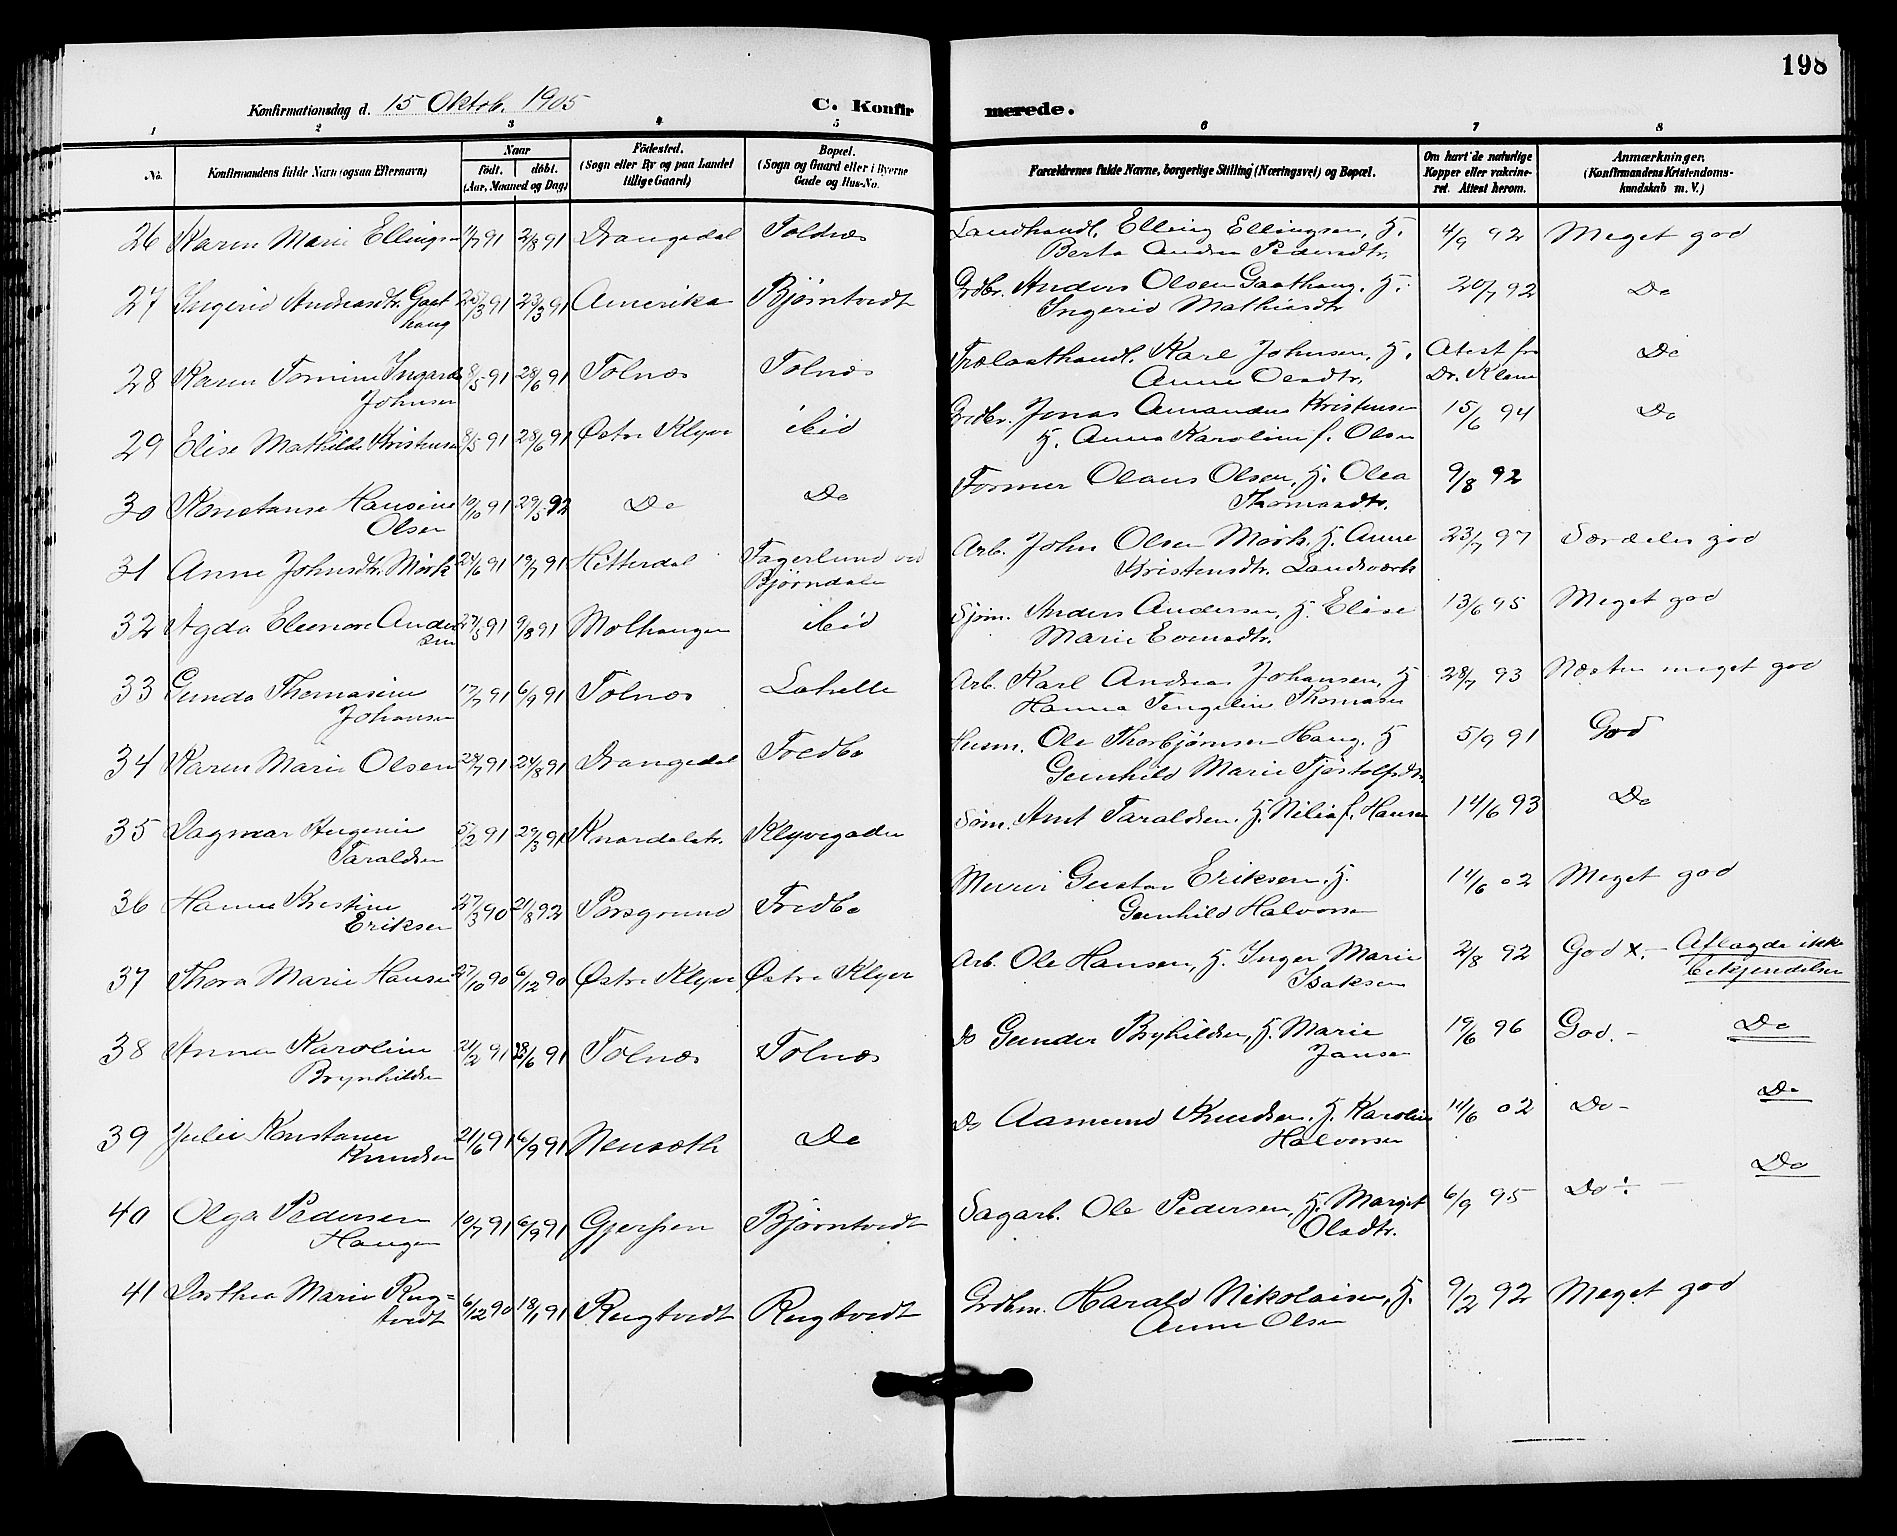 198
Konfirmationsdag d. 15 Oktob. 1905 C. Konfirmerede.
1 2 3 4 5 6 7 8
No. Konfirmandens fulde Navn (ogsaa Efternavn) Naar födt. döbt. (Aar, Maaned og Dag) Födested. (Sogn eller By og paa Landet tillige Gaard) Bopæl. (Sogn og Gaard eller i Byerne Gade og Hus-No. Forældrenes fulde Navne, borgerlige Stilling (Næringsvei) og Bopæl. Om havt de naturlige Kopper eller vakcineret. Attest herom. Anmærkninger. (Konfirmandens Kristendomskundskab m. V.)
26 Karen Marie Ellingsen 91 2/8 91 Drangedal Tolnæs Landhandl. Elling Ellingsen, H. 4/9 92 Meget god
Berte Andrea Pedersdtr.
27 Ingerid Andreasdtr. Gaat 91 23/3 91 Amerika Bjørntvedt Grdbr. Anders Olsen Gaathaug, H. 20/7 92 Do
haug Ingerid Mathiasdtr
28 Karen Tomine Ingarda 8/5 91 28/6 91 Tolnæs Tolnæs Trælasthandl. Karl Johnsen, H. Atest fra Do
Johnsen Anne Olsdtr. Dr. Klem
29 Elise Mathilde Kristensen 8/5 91 28/6 91 Østre Klyve ibid Grdbr. Jonas Amandus Kristensen 15/6 94 Do
H. Anna Karoline f. Olsen
30 Konstanse Hansine 10/10 91 29/5 92 Do Do Former Olaus Olsen, H. Olea 9/8 92
Olsen Thomasdtr.
31 Anne Johnsdtr. Mørk 24/6 91 19/7 91 Hitterdal Fagerlund ved Arb. John Olsen Mørk, H. Anne 23/7 97 Særdeles god
Bjørndalen Kristensdtr. Landsværk
32 Agda Eleonore Ander 27/5 91 9/8 91 Molhaugen ibid Sjøm. Anders Andersen, H. Elise 13/6 95 Meget god
sen Marie Evensdtr.
33 Gunda Thomasine 17/7 91 6/9 91 Tolnæs Lahelle Arb. Karl Andreas Johansen, H 28/7 93 Næsten meget god
Johansen Hanna Thomasen
34 Karen Marie Olsen 91 24/8 91 Drangedal Fredbo Husm. Ole Thorbjørnsen Haug. H 5/9 91 God
Gunhild Marie Tjøstolfsdtr.
35 Dagmar Augenie 5/2 91 29/3 91 Knardalstr. Klyvegaden Søm. Amt Taraldsen. H. Nilia f. Hansen 14/6 93 Do
Taraldsen
36 Hanna Kristine 27/3 90 21/8 92 Porsgrund Fredbo Murer Gustav Eriksen, H. 14/6 02 Meget god
Eriksen Gunhild Halvorsen
37 Thora Marie Hansen 27/10 90 6/12 90 Østre Klyve Østre Klyve Arb. Ole Hansen, H. Inger Marie 2/8 92 God x. – Aflagde ikke
Isaksen bekjendelse
38 Anna Karoline 21/2 91 28/6 91 Tolnæs Tolnæs Do Gunder Byhildsen, H. Marie 19/6 96 God. – Do
Brynhildsen Jansen
39 Julie Konstanse 21/6 91 6/9 91 Nensæth Do Do Aamund Knudsen, H. Karoline 11/6 02 Do – Do
Knudsen Halvorsen
40 Olga Pedersen 10/7 91 6/9 91 Gjerpen Bjørntvedt Sagarb. Ole Pedersen, H. Margit 6/9 95 Do ÷ – Do
Haugen Olsdtr.
41 Dorthea Marie Rug= 6/12 90 18/1 91 Rugtvedt Rugtvedt Grdbm. Harald Nikolaisen, H. 9/2 92 Meget god
tvedt Anne Olsen